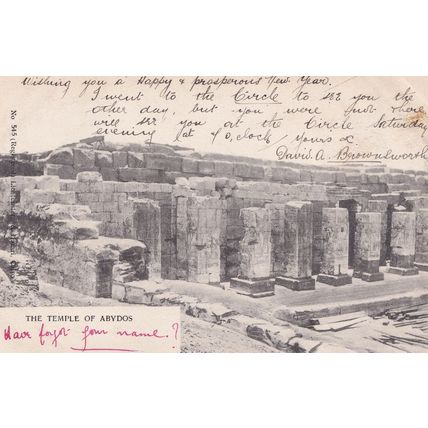 Wishing you a Happy & prosperous New Year.
I went to the Circle to see you the
other day, but you were not there
will see you at the Circle Saturday
evening at o,clock / yours &
David. A. Brownsworth
No 545
THE TEMPLE OF ABYDOS
Have forgot your name. ?